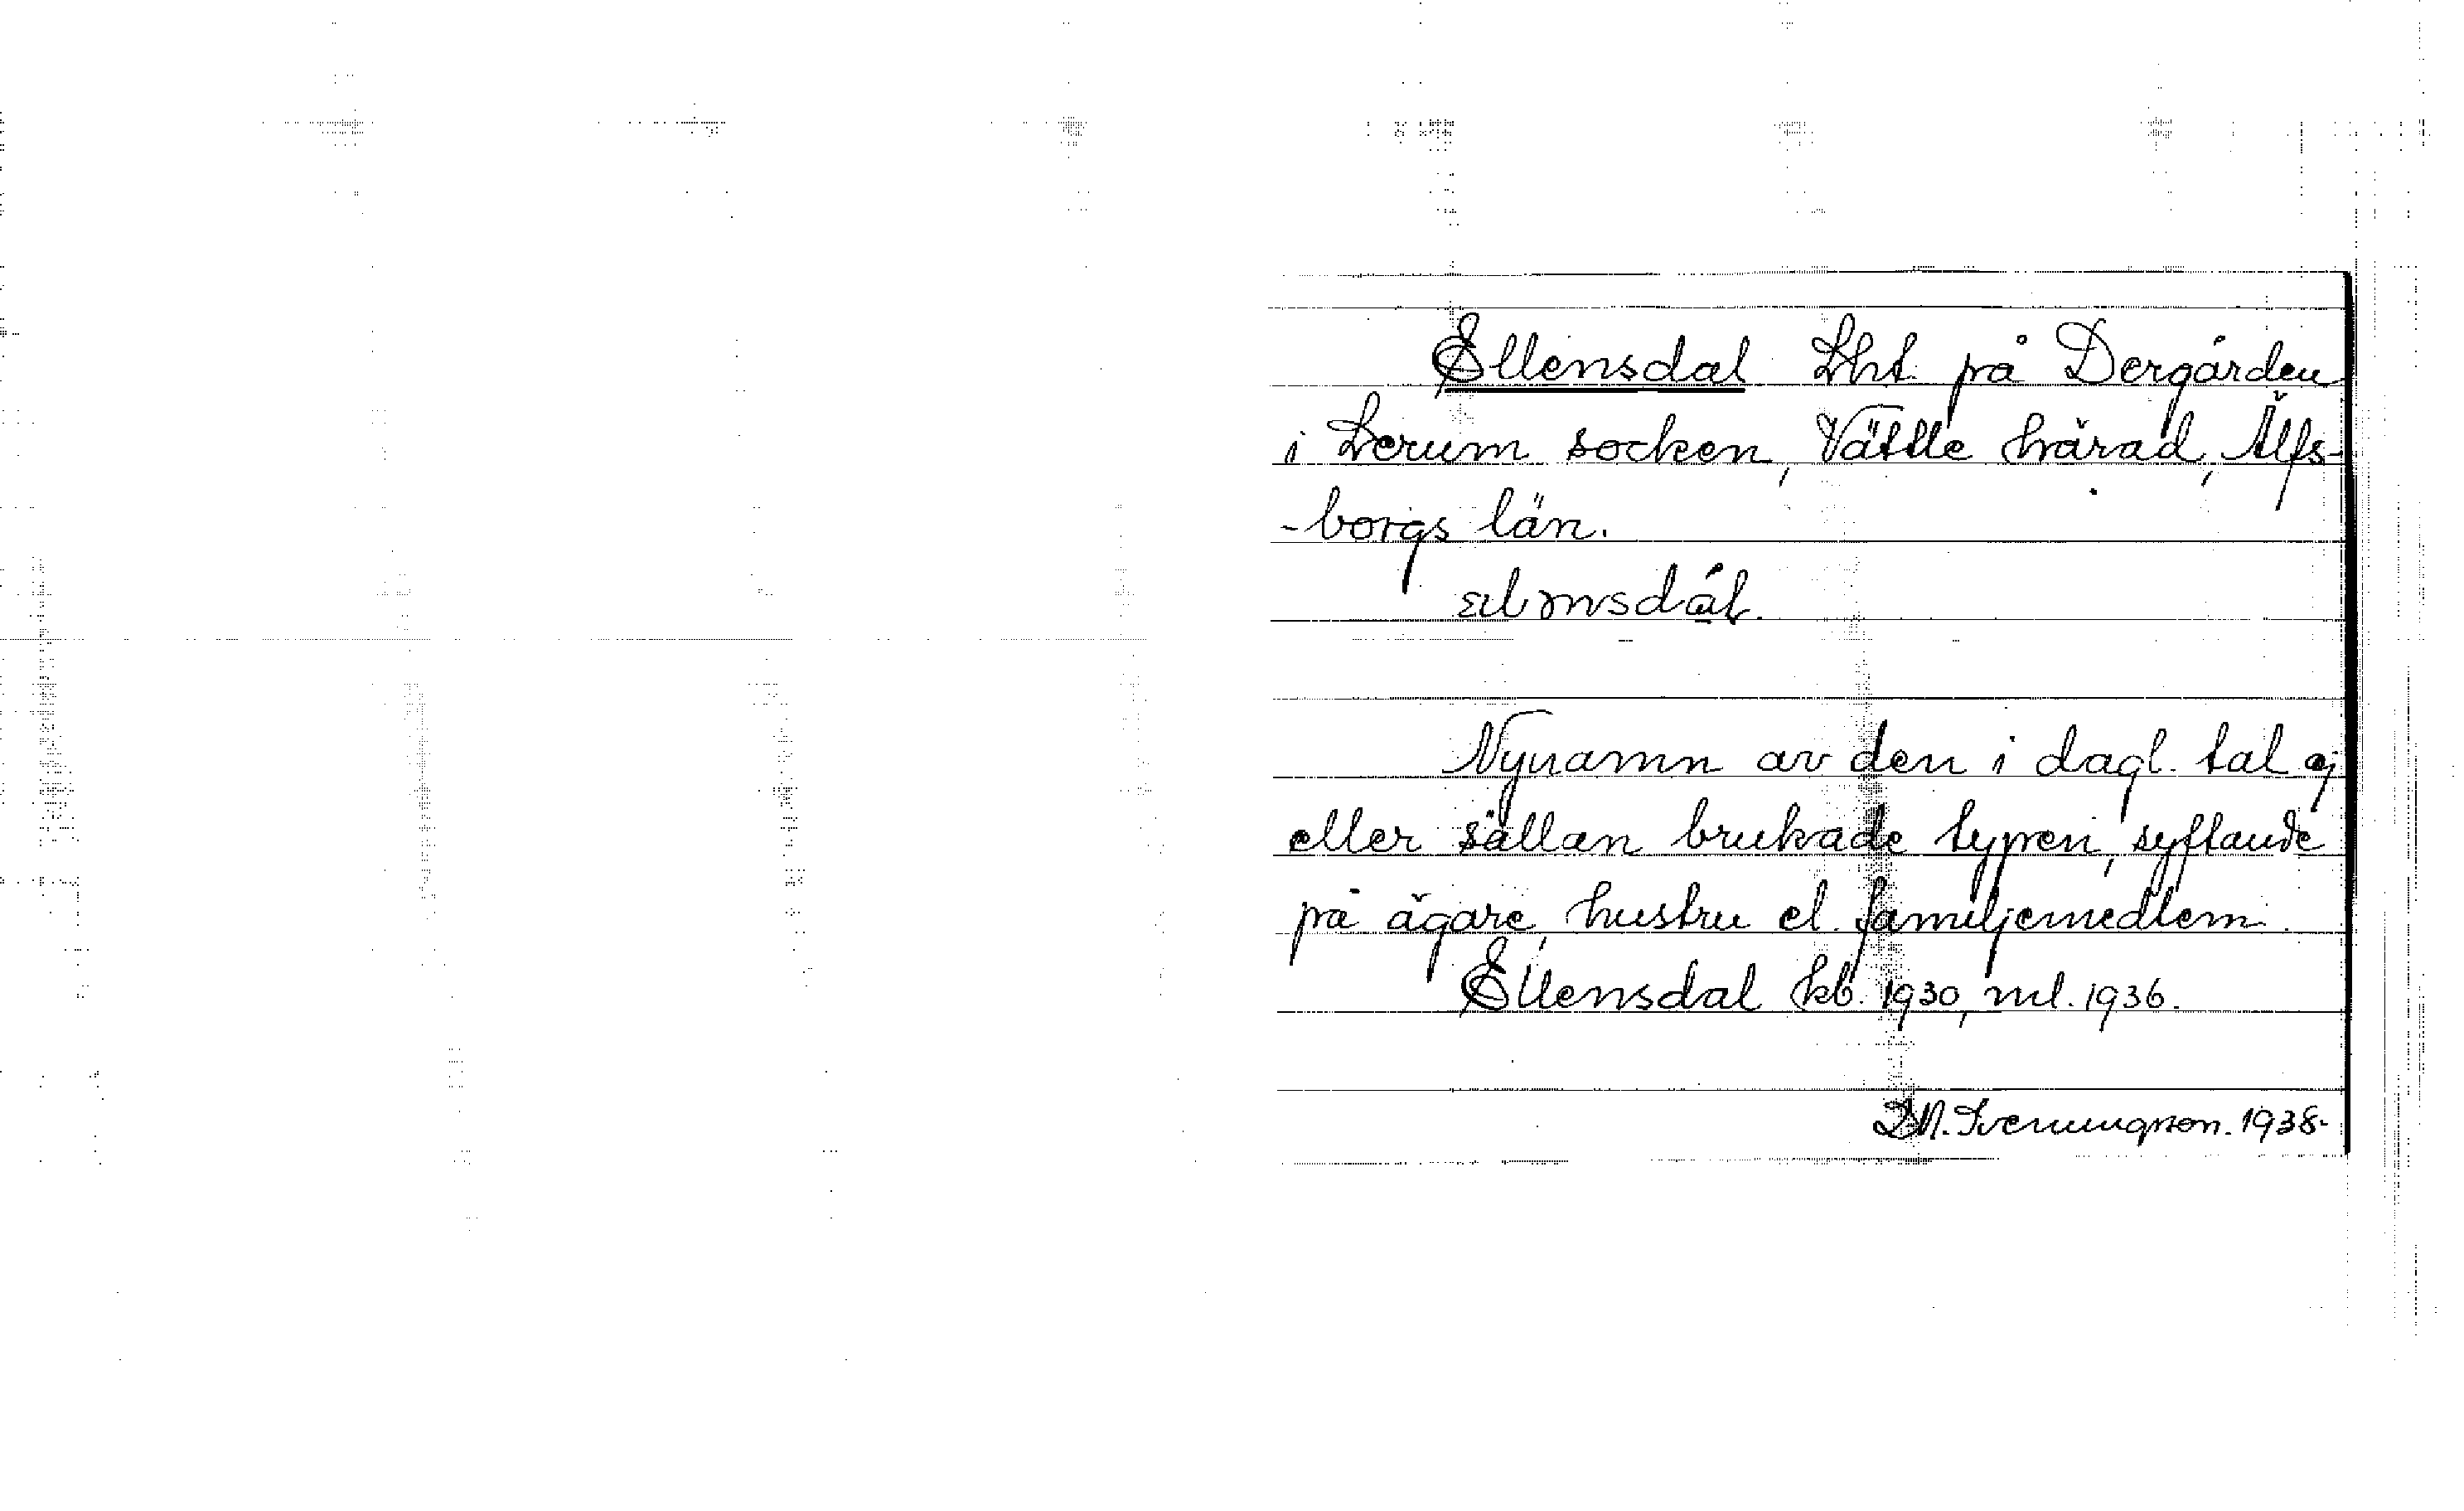 Ellensdal Lht. på Dergården
i Lerum socken, Vättle härad, Älfs-
-borgs län.
Nynamn av den i dagl. tal ej
eller sällan brukade typen, syftande
på ägare, hustru el. familjemedlem.
Ellensdal kb. 1930, ml. 1936.
1938.